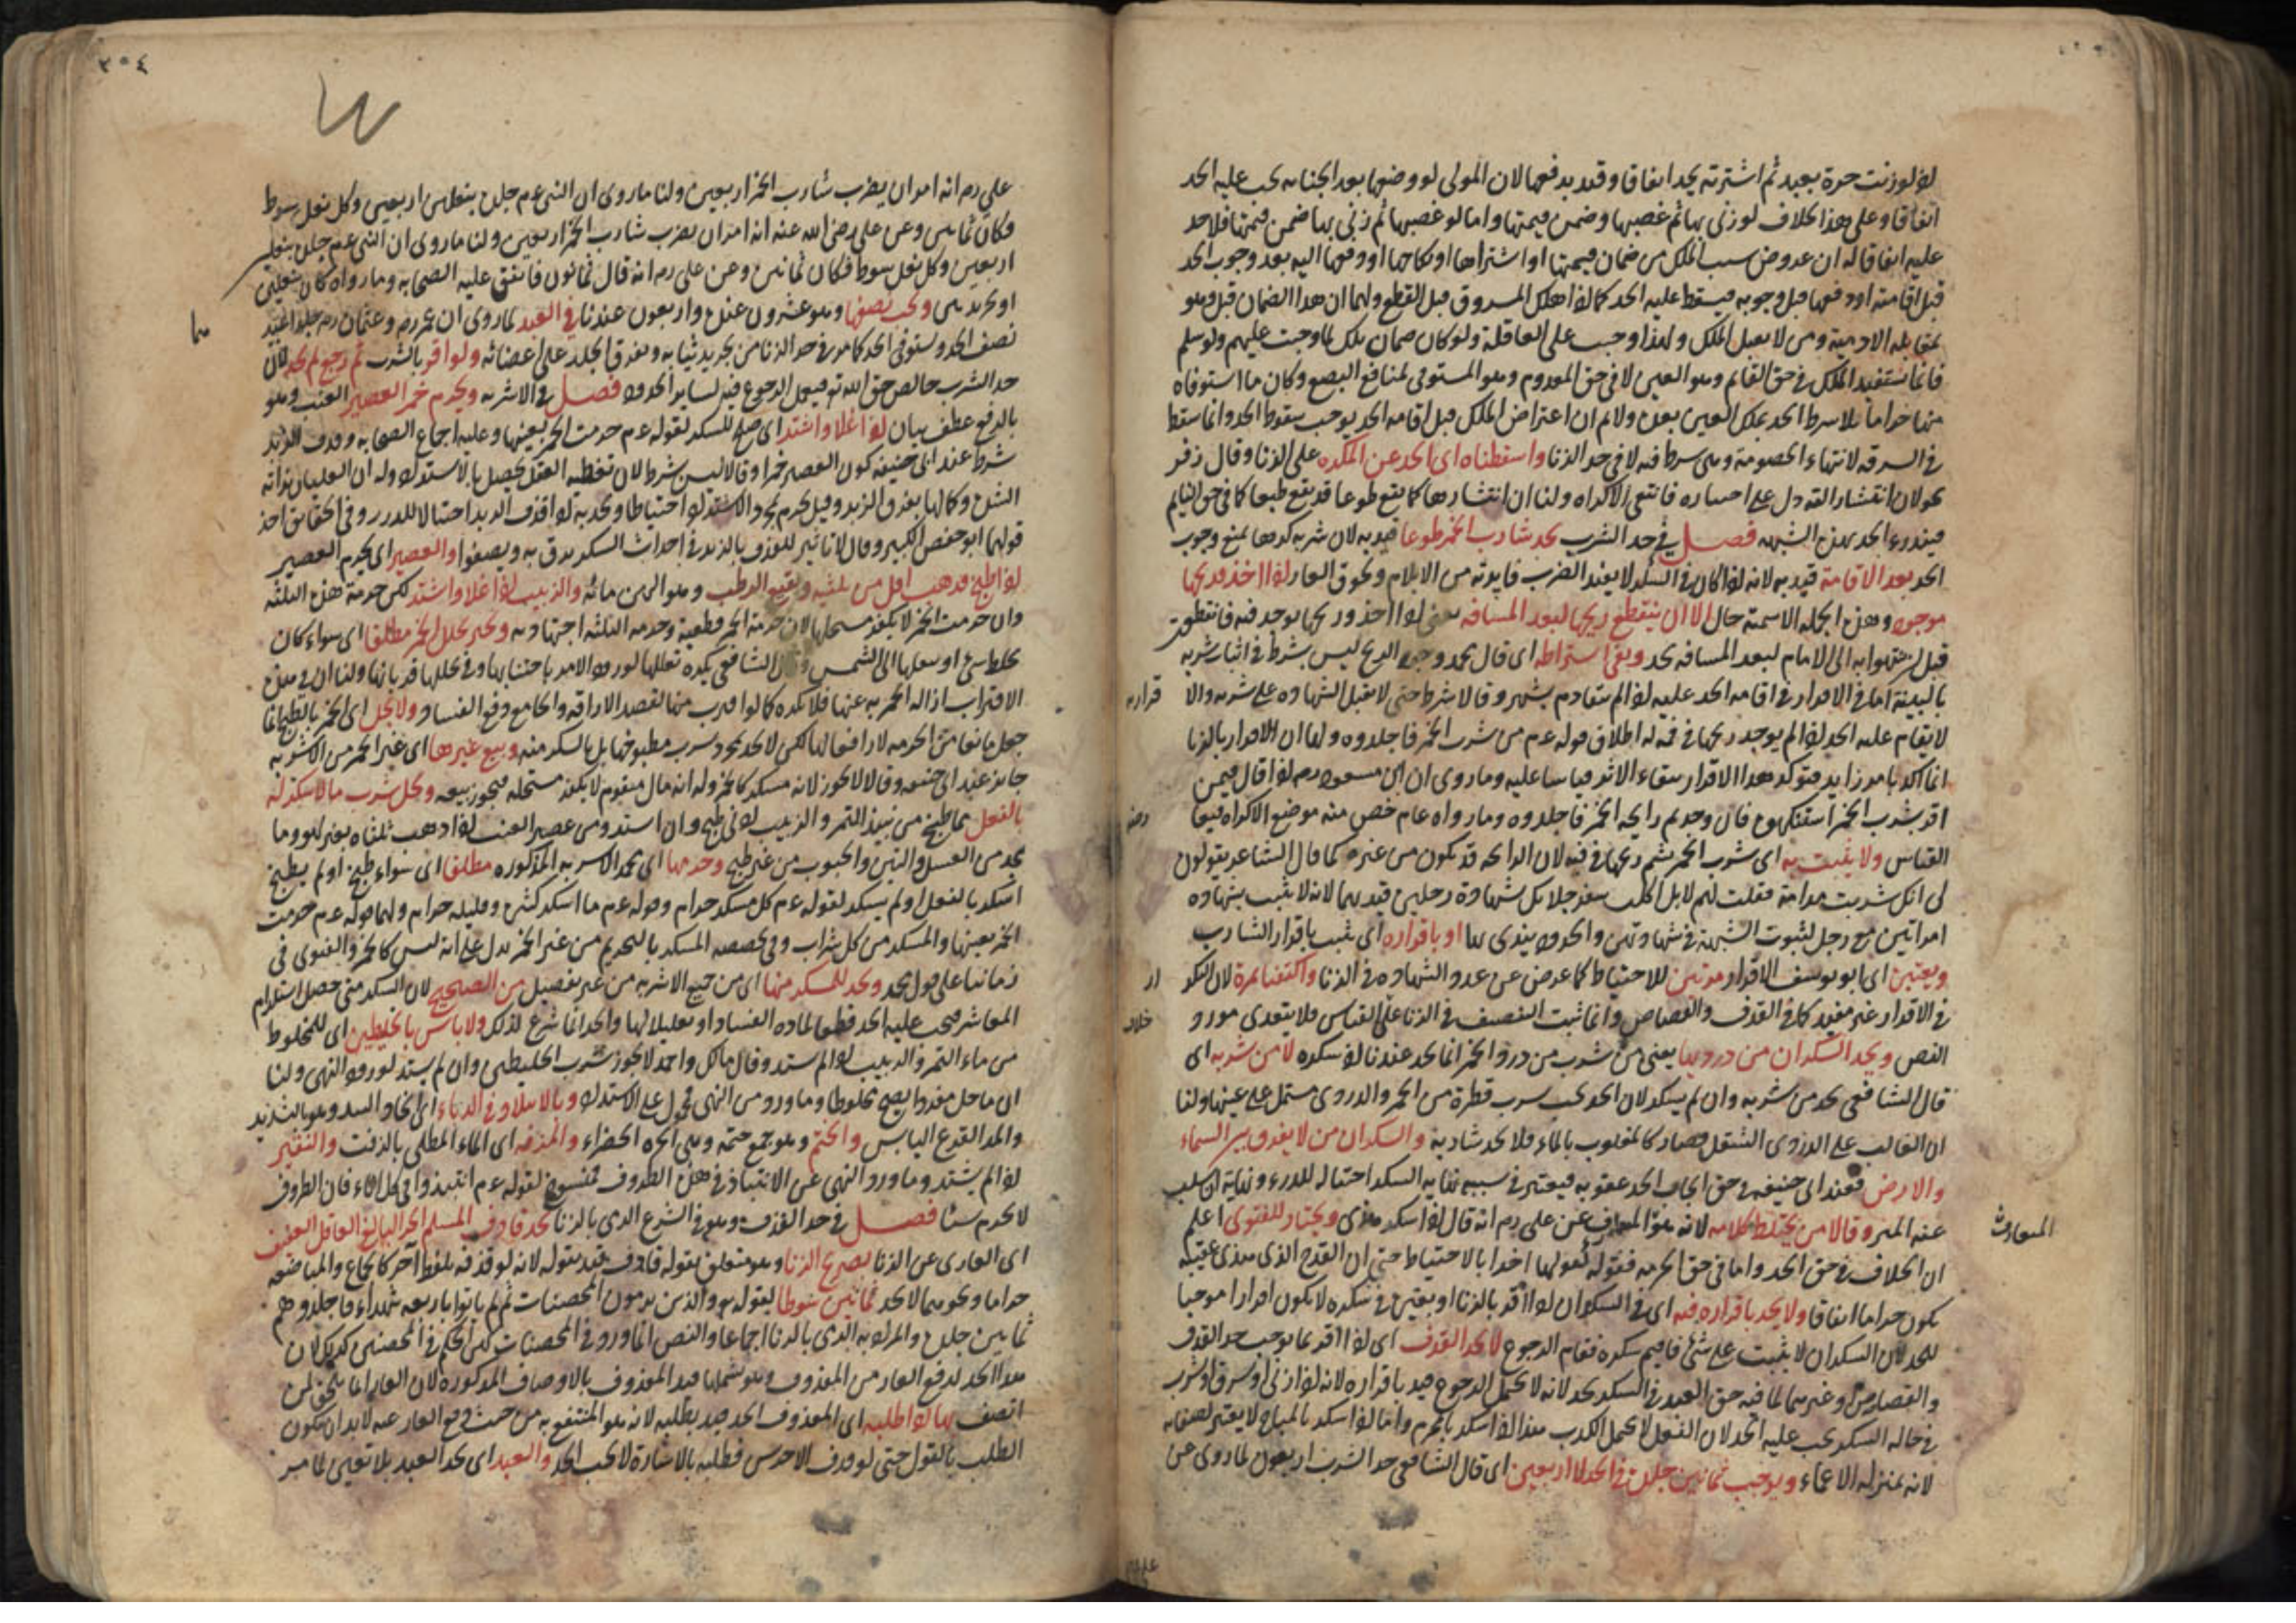 لو زنت حرة بعبد ثم اشترته يحد اتفاقا وقيد بدفعها لان المولى لو
اتفاقا وعلى هذا الخلاف لو زنى بها ثم غصبها وضمن قيمتها واما لو غصبها ثم زنى بها ضمن قيمتها فلا حد
عليه اتفاقا له ان عروض سبب الملك من ضمان قيمتها او اشتراها او نكاحها او دفعها اليه بعد وجوب الحد
قبل اقامته او دفعها قبل وجوبه فيسقط عليه الحد كما اذا هلك المسروق قبل القطع ولهما ان هذا الضمان قبل وهو
بمقابلة الادمية وهى لا يقبل الملك ولهذا وجب على العاقلة ولو كان ضمان ملك لما وجبت عليهم ولو سلم
فانما يستفيد الملك فى حق القائم وهو العين لا فى حق المعدوم وهو المستوفى لمنافع البضع وكان ما استوفاه
منها حراما سقوط الحد وانما سقط
فى السرقة لانتهاء الخصومة وهى شرط فيه لا فى حد الزنا واسقطناه اى الحد عن المكره على الزنا وقال زفر
فانتفى الاكراه ولنا ان انتشارها كما يقع طوعا قد يقع طبعا كما فى حق النايم
فيندرء الحد بهذه الشبهة فصل فى حد الشرب يحد شارب الخمر طوعا قيد به لان شربه كرها يمنع وجوب
الحد بعد الافاقة قيد به لانه لو كان فى السكر لا يفيد الضرب فايدته من الايلام ولحوق العار اذا اخذ وريحها
موجود وهذه الجملة الاسمية حال الا ان ينقطع ريحها لبعد المسافة يعنى لو اخذ وريحها يوجد فيه فانقطعت
قبل ان ينتهوا به الى الامام لبعد المسافة يحد ونفى اشتراطه اى قال محمد وجود الريح ليس بشرط فى اثبات شربه
بالبينة اما فى الاقرار فى اقامة الحد عليه اذا لم يتقادم بشهر وقالا شرط حتى لا يقبل الشهادة على شربه والا
قراره
لا يقام عليه الحد اذا لم يوجد ريحها فى فيه له اطلاق قوله عم من شرب الخمر فاجلدوه ولهما ان الاقرار بالزنا
وما روى ان ابن مسعود رم لو قال فيمن
اقر بشرب الخمر استنكهوه فان وجدتم رايحة الخمر فاجلدوه وما رواه عام خص منه موضع الاكراه فيما
القياس ولا يثبت به اى شرب الخمر بشم ريحها فى فيه لان الرايحة قد تكون من غيره كما قال الشاعر يقولون
لى انكه شربت مدامة فقلت لهم لا بل اكلت سفرجلا بل شهادة رجلين قيد بهما لانه لا يثبت بشهادة
امراتين مع رجل لثبوت الشبهة فى شهادتهن والحدود يندرى بها او باقراره اى يثبت باقرار الشارب
ويعتبر اى ابو يوسف الاقرار مرتين للاحتياط كما عرض عن عدد الشهادة فى الزنا واكتفيا بمرة لان التكر
ار
فى الاقرار غير مفيد كما فى القذف والقصاص وانما ثبت التنصيف فى الزنا على خلاف القياس فلا يتعدى مورد
النص ويحد السكران من درديها يعنى من شرب من دردى الخمر انما يحد عندنا اذا سكره لا من شربه اى
قال الشافعى يحد من شربه وان لم يسكر لان الحد يجب بشرب قطرة من الخمر والدردى مشتمل على عينها ولنا
ان الغالب على الدردى الثفل فصار كالمغلوب بالماء فلا يحد شاربه والسكران من لا يفرق بين السماء
والارض فعند ابى حنيفة فى حق ايجاب الحد عقوبة فيعتبر فى سببه نهاية السكر احتيالا للدرء ونهاية ان يسلب
عنه التميز وقالا من يختلط كلامه لانه هو المتعارف عن على رم انه قال اذا سكر هذى ويختار للفتوى اعلم
المتعارف
ان الخلاف فى حق الحد واما فى حق الحرمة فقوله كقولهما اخذا بالاحتياط حتى ان القدح الذى هذى عقيبه
يكون حراما اتفاقا ولا يحد باقراره فيه اى فى السكران اذا اقر بالزنا او بغيره فى سكره لا يكون اقرارا موجبا
للحد لان السكران لا يثبت على شئ فاقيم سكره مقام الرجوع لا بحد القذف اى لو اقر بما يوجب حد القذف
والقصاص وغيرهما لما فيه حق العبد فى السكر يحد لانه لا يحتمل الرجوع قيد باقراره لانه لو زنى او سرق او شرب
فى حالة السكر يجب عليه الحد لان الفعل لا يحتمل الكذب هذا اذا سكر بالمحرم واما اذا سكر بالمباح لا يعتبر
لانه بمنزلة الاغماء ويوجب ثمانين جلدة فى الحد لا اربعين اى قال الشافعى حد الشرب اربعون لما روى عن
٢٥٤
على رم انه امر ان يضرب شارب الخمر اربعين ولنا ما روى ان النبى عم جلد بنعلين اربعين وكل نعل سوط
فكان ثمانين وعن على رضى الله عنه انه امر ان يضرب شارب الخمر اربعين ولنا ما روى ان النبى عم جلد بنعلين
اربعين وكل نعل سوط فكان ثمانين وعن على رم انه قال ثمانون فاتفق عليه الصحابة وما رواه كان بنعلين
او بجريدتين ويجب نصفها وهو عشرون عنده واربعون عندنا فى العبد لما روى ان عمر رم وعثمان رم جلدوا العبد
نصف الحد ويستوفى الحد كما مر فى حد الزنا من تجريد ثيابه وتفريق الجلد على اعضائه ولو اقر بالشرب ثم رجع لم يحد لان
حد الشرب خالص حق الله تع فيعمل الرجوع فيه كساير الحدود فصل فى الاشربة ويحرم خمر العصير العنب وهو
بالرفع عطف بيان اذا غلا واشتد اى صلح للسكر لقوله عم حرمت الخمر بعينها وعليه اجماع الصحابة وقذف الزبد
شرط عند ابى حنيفة كون العصير خمرا وقالا ليس بشرط لان تغطية العقل يحصل بالاشتداد وله ان الغليان بداية
الشدة وكمالها بقذف الزبد وقيل يحرم بمجرد الاشتداد احتياطا ويحد به اذا قذف الزبد احتيالا للدرء وفى الحقايق اخذ
قولهما ابو حفص الكبير وقال لا تاثير للقذف بالزبد فى احداث السكر يرق به ويصفو والعصير اى يحرم العصير
اذا طبخ فذهب اقل من ثلثيه ونقيع الرطب وهو النى من مائه والزبيب اذا غلا واشتد لكن حرمة هذه الثلثة
وان حرمت الخمر لا يكفر مستحلها لان حرمة الخمر قطعية وحرمة الثلثة اجتهادية ونجيز تخلل الخمر مطلقا اى سواء كان
بخلط شئ او بنقلها الى الشمس وقال الشافعى يكره تخليلها لورود الامر باجتنابها وفى تخليلها قربانها ولنا ان فى هذا
الاقتراب ازالة الخمرية عنها فلا يكره كما لو اقترب منها لقصد الاراقة والجامع دفع الفساد ولا يحل اى الخمر بالطبخ انما
جعل مانعا من الحرمة لا رافعا لها لكن لا يحد بمجرد شرب مطبوخها بل بالسكر منه وبيع غيرها اى غير الخمر من الاشربة
جايز عند ابى حنيفة وقالا لا يجوز لانه مسكر كالخمر وله انه مال متقوم لا يكفر مستحله فيجوز بيعه وحل شرب ما لا يسكر له
بالفعل مما طبخ من نبيذ التمر والزبيب ادنى طبخ وان اشتد ومن عصير العنب اذا ذهب ثلثاه بغير لهو وما
يتخذ من العسل والتين والحبوب من غير طبخ وحرمها اى محمد الاشربة المذكورة مطلقا اى سواء طبخ او لم يطبخ
اسكر بالفعل او لم يسكر لقوله عم كل مسكر حرام وقوله عم ما اسكر كثيره فقليله حرام ولهما قوله عم حرمت
الخمر بعينها والمسكر من كل شراب وفى تخصيصه المسكر بالتحريم من غير الخمر يدل على انه ليس كالخمر والفتوى فى
زماننا على قول محمد ويحد للسكر منها اى من جميع الاشربة من غير تفصيل من الصحيح لان السكر متى حصل استلزام
المعاشر فيجب عليه الحد قطعا لمادة الفساد او تقليلا لها والحد انما شرع لذلك ولا باس بالخليطين اى للمخلوط
من ماء التمر والزبيب اذا لم يشتد وقال مالك واحمد لا يجوز شرب الخليطين وان لم يشتد لورود النهى ولنا
ان ما حل مفردا يصح مخلوطا وما ورد من النهى محمول على الاشتداد وبالانتباذ فى الدباء
والمد القرع اليابس والحنتم وهو جمع حنتمة وهى الجرة الخضراء والمزفت اى الاناء المطلى بالزفت والنقير
اذا لم يشتد وما ورد النهى عن الانتباذ فى هذه الظروف فمنسوخ لقوله عم انتبذوا فى كل اناء فان الظروف
لا يحرم شيئا فصل فى حد القذف وهو فى الشرع الرمى بالزنا يحد قاذف المسلم الحر البالغ العاقل العفيف
اى العارى عن الزنا بصريح الزنا وهو متعلق بقوله قاذف قيد بقوله لانه لو قذفه بلفظ آخر كالجماع والمباضعة
حراما ونحوهما لا يحد ثمانين سوطا لقوله تع والذين يرمون المحصنات ثم لم ياتوا باربعة شهداء فاجلدوهم
ثمانين جلدة والمراد به الرمى بالزنا اجماعا والنص انما ورد فى المحصنات لكن الحكم فى المحصنين كذلك لان
هذا الحد لدفع العار من المقذوف وهو يشملهما قيد المقذوف بالاوصاف المذكورة لان العار انما يلحق لمن
اتصف بها اذا طلبه اى المقذوف الحد قيد بطلبه لانه هو المنتفع به من حيث دفع العار عنه لابد ان يكون
الطلب بالقول حتى لو قذف الاخرس فطلبه بالاشارة لا يجب الحد والعبد اى يحد العبد